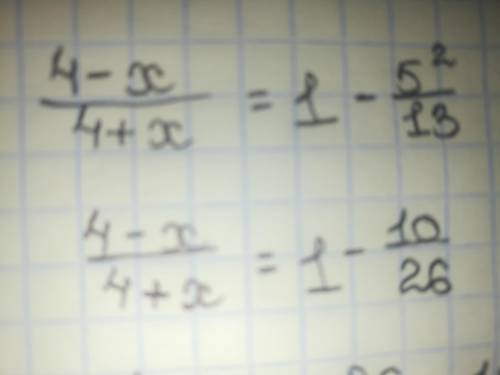 4 - x / 4 + x = 1 - 5² / 13
4 - x / 4 + x = 1 - 10 / 26